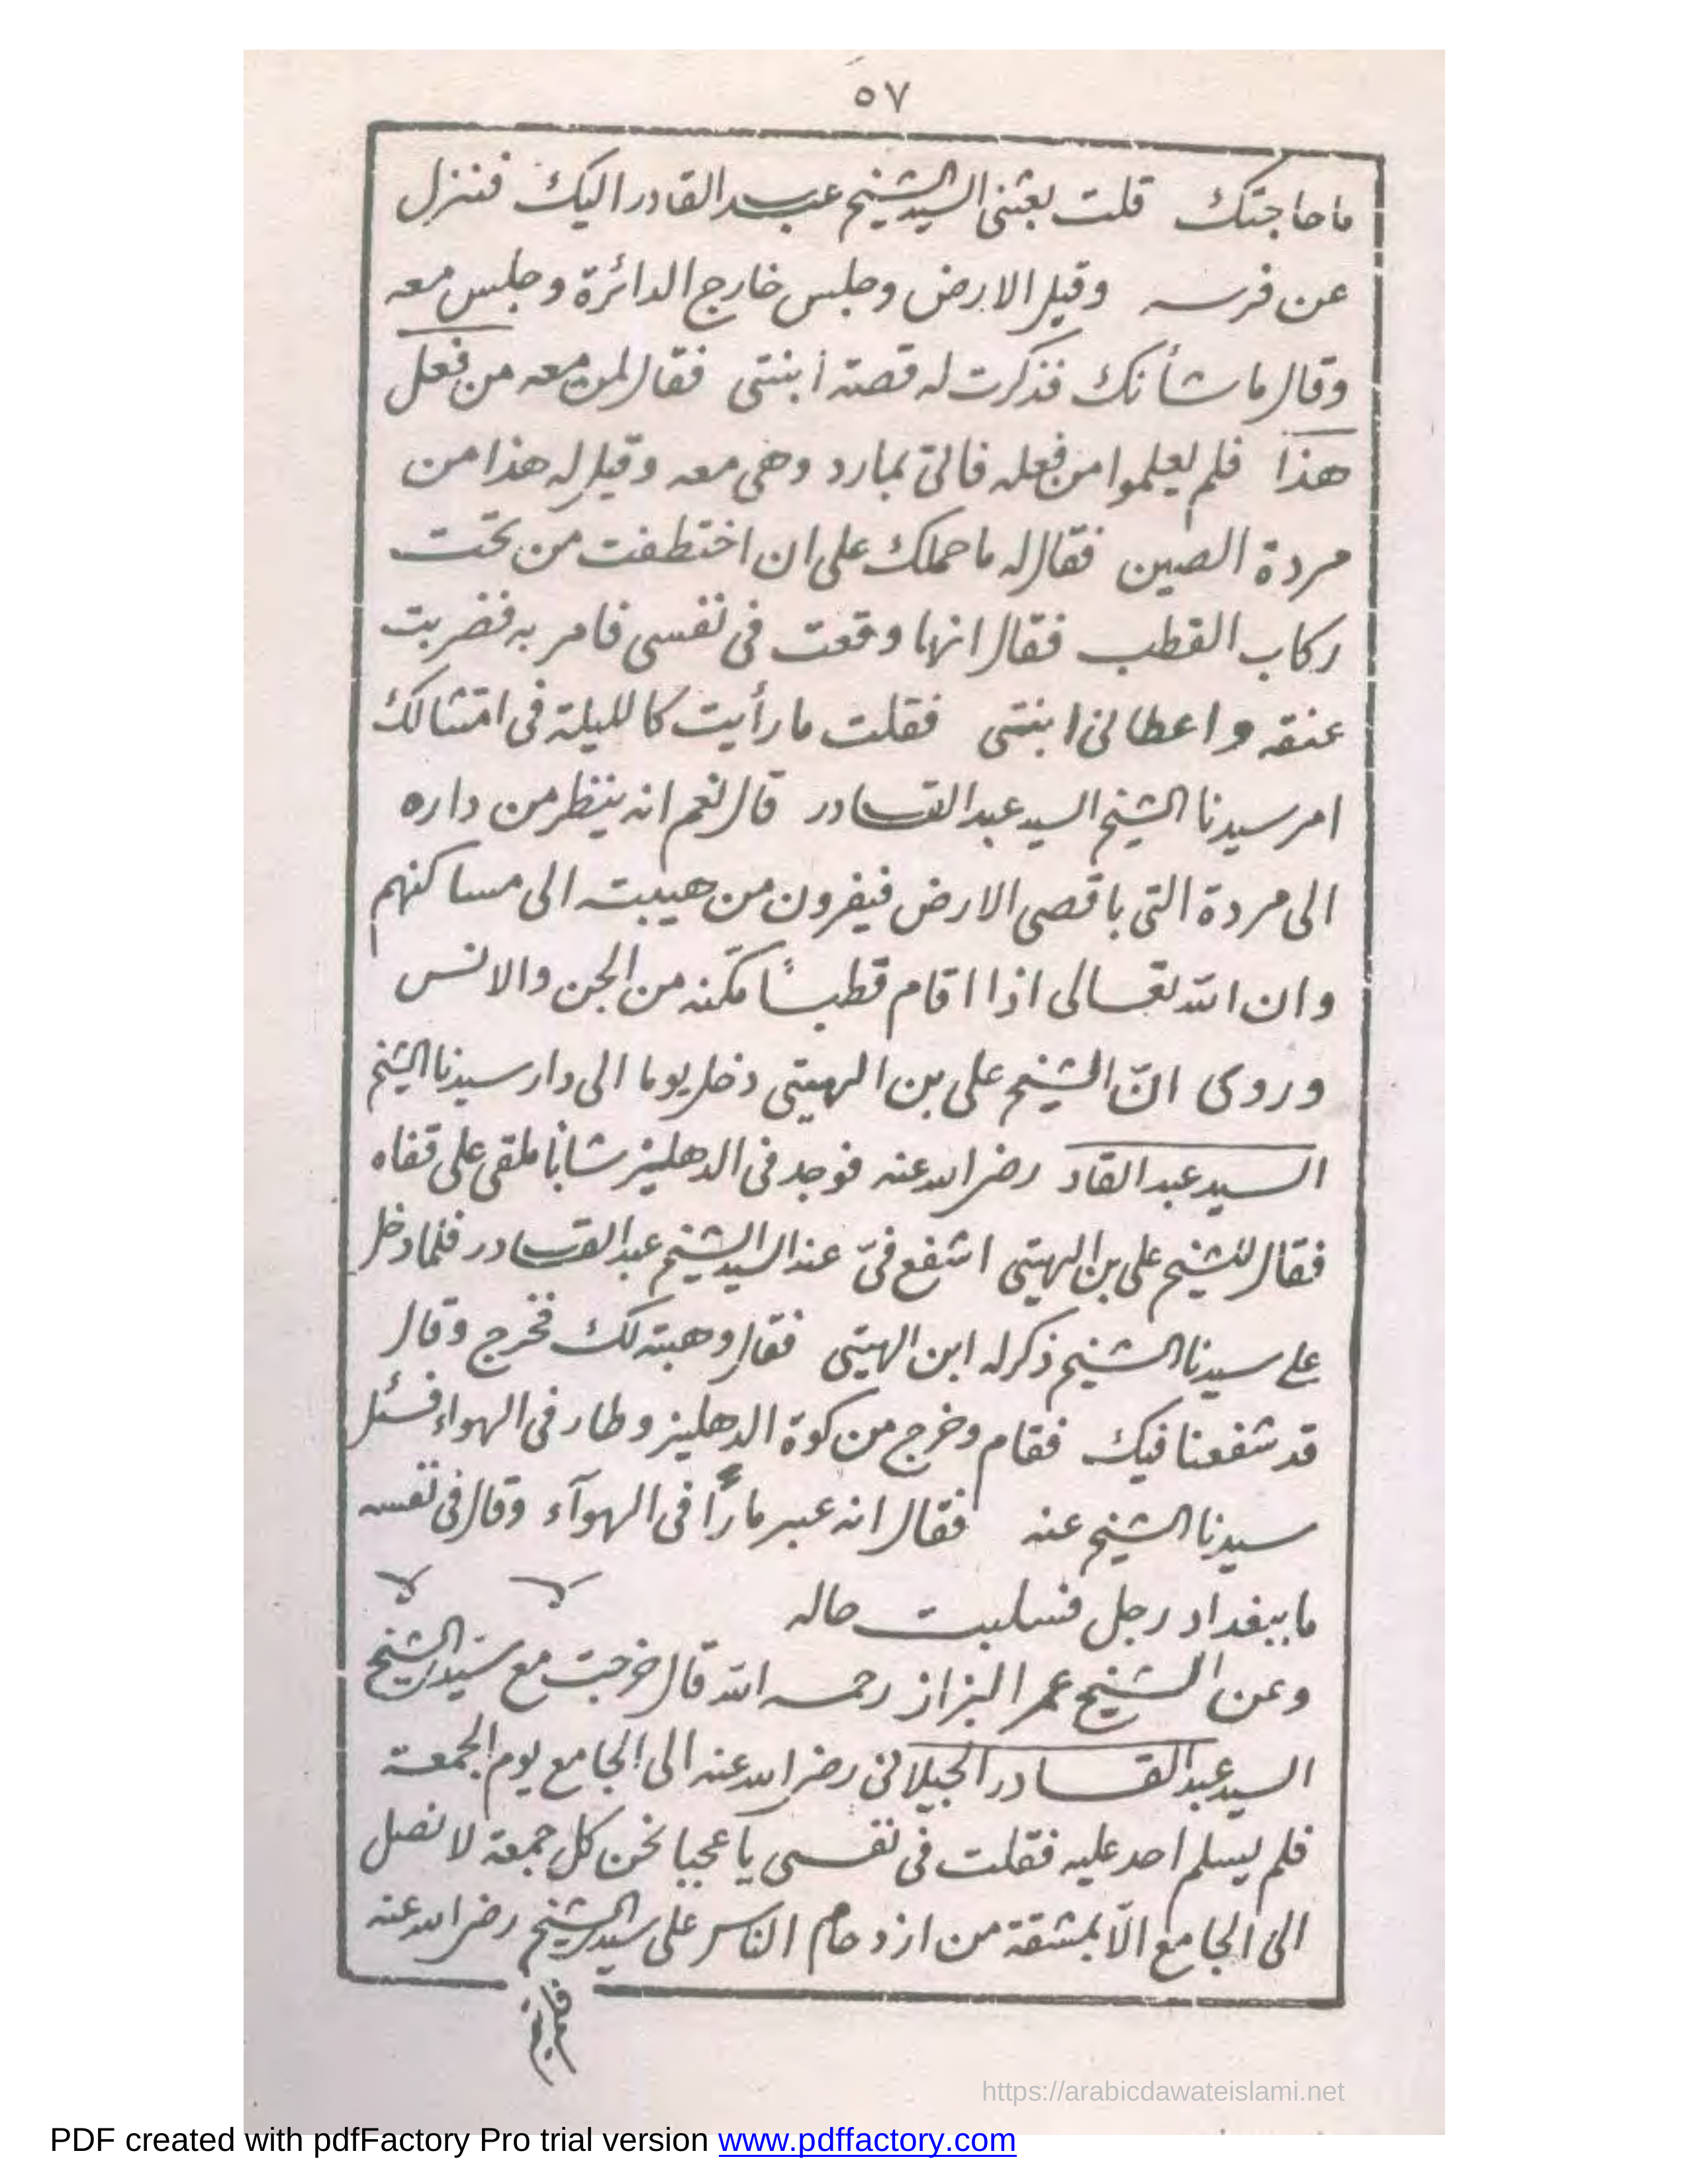 ٥٧
ما حاجتك قلت بعثنى السيد الشيخ عبد القادر اليك فننزل
عن فرسه وقبل الارض وجلس خارج الدائرة وجلس معه
وقال ما شأنك فذكرت له قصة ابنتى فقال لمن معه من فعل
هذا فلم يعلموا من فعله فاتى بمارد وهى معه وقيل له هذا من
مردة الصين فقال له ما حملك على ان اختطفت من تحت
ركاب القطب فقال انها وقعت فى نفسى فامر به فضربت
عنقه واعطانى ابنتى فقلت ما رأيت كالليلة فى امتثالك
امر سيدنا الشيخ السيد عبد القادر قال نعم انه ينظر من داره
الى مردة التى باقصى الارض فيفرون من هيبته الى مساكنهم
وان الله تعالى اذا اقام قطباً مكّنه من الجن والانس
وروى انّ الشيخ على بن الهيتى دخل يوما الى دار سيدنا الشيخ
السيد عبد القاد رضى الله عنه فوجد فى الدهليز شابًا ملقى على قفاه
فقال للشيخ على بن الهيتى اشفع فىّ عند السيد الشيخ عبد القادر فلما دخل
على سيدنا الشيخ ذكر له ابن الهيتى فقال وهبته لك فخرج وقال
قد شفعنا فيك فقام وخرج من كوة الدهليز وطار فى الهواء فسئل
سيدنا الشيخ عنه فقال انه عبر مارًا فى الهوآء وقال فى نفسه
ما ببغداد رجل فسلبت حاله
وعن الشيخ عمر البزاز رحمه الله قال خرجت مع سيد الشيخ
السيد عبد القادر الجيلانى رضى الله عنه الى الجامع يوم الجمعة
فلم يسلم احد عليه فقلت فى نفسى يا عجبا نحن كل جمعة لا نصل
الى الجامع الّا بمشقة من ازدحام الناس على سيد الشيخ رضى الله عنه
https://arabicdawateislami.net
PDF created with pdfFactory Pro trial version www.pdffactory.com